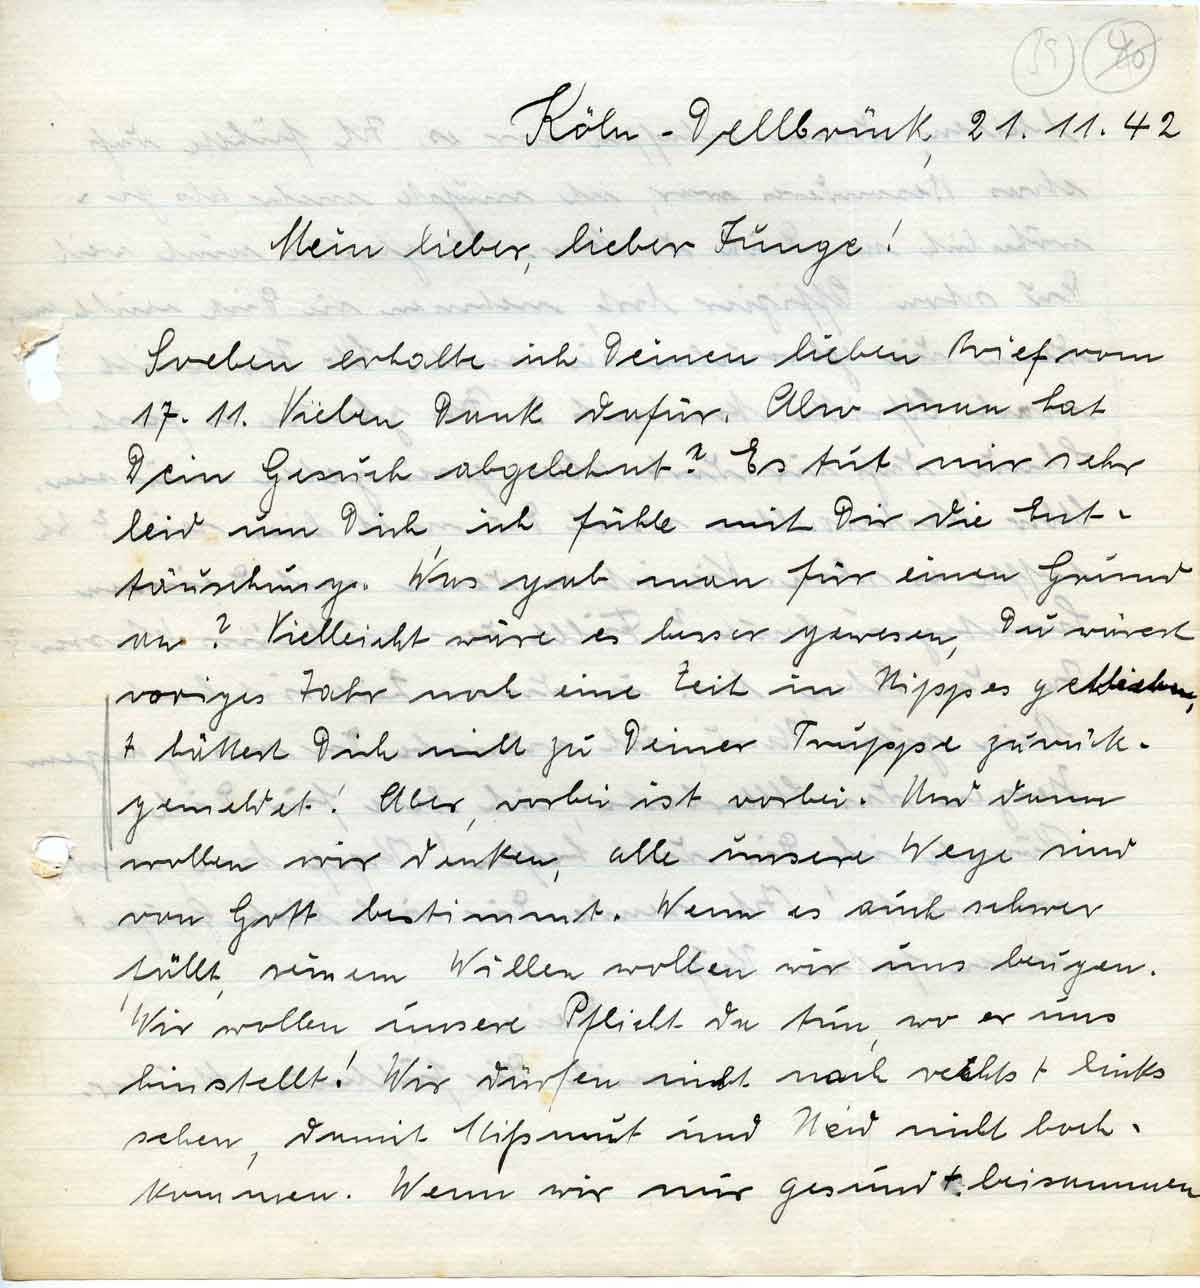 39 40
Köln-Dellbrück, 21.11.42
Mein lieber, lieber Junge!
Soeben erhalte ich Deinen lieben Brief vom
17.11. Vielen Dank dafür. Also man hat
Dein Gesuch abgelehnt? Es tut mir sehr
leid um Dich, ich fühle mit Dir die Ent-
täuschung. Was gab man für einen Grund
an? Vielleicht wäre es besser gewesen, Du wärest
voriges Jahr noch eine Zeit in Nippes geblieben,
+ hättest Dich nicht zu Deiner Truppe zurück-
gemeldet! Aber, vorbei ist vorbei. Und dann
wollen wir denken, alle unsere Wege sind
von Gott bestimmt. Wenn es auch schwer
fällt, seinem Willen wollen wir uns beugen.
Wir wollen unsere Pflicht da tun, wo er uns
hinstellt! Wir dürfen nicht nach rechts + links
sehen, damit Mißmut und Neid nicht hoch-
kommen. Wenn wir nur gesund + beisammen